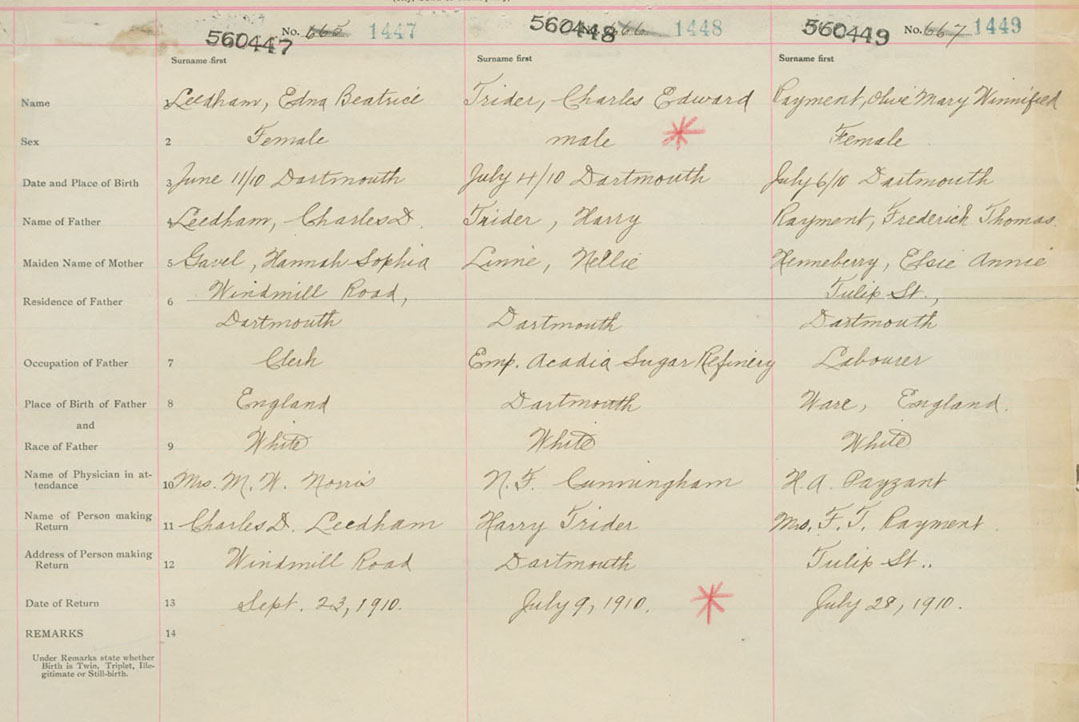 560447 No. 665 1447 560448 666 1448 560449 No. 667 1449
Surname first Surname first Surname first
Name 1 Leedham, Edna Beatrice Trider, Charles Edward Rayment, Olive Mary Winnifred
Sex 2 Female male Female
Date and Place of Birth 3 June 11/10 Dartmouth July 4/10 Dartmouth July 6/10 Dartmouth
Name of Father 4 Leedham, Charles D. Trider, Harry Rayment, Frederick Thomas
Maiden Name of Mother 5 Gavel, Hannah Sophia Linne, Nellie Henneberry, Elsie Annie
Residence of Father 6 Windmill Road, Tulip St.,
Dartmouth Dartmouth Dartmouth
Occupation of Father 7 Clerk Emp. Acadia Sugar Refinery Labourer
Place of Birth of Father 8 England Dartmouth Ware, England.
and
Race of Father 9 White White White
Name of Physician in at-
tendance 10 Mrs. M. W. Norris N. F. Cunningham H. A. Payzant
Name of Person making
Return 11 Charles D. Leedham Harry Trider Mrs. F. T. Rayment.
Address of Person making
Return 12 Windmill Road Dartmouth Tulip St..
Date of Return 13 Sept. 23, 1910. July 9, 1910. July 28, 1910.
REMARKS 14
Under Remarks state whether
Birth is Twin, Triplet, Ille-
gitimate or Still-birth.